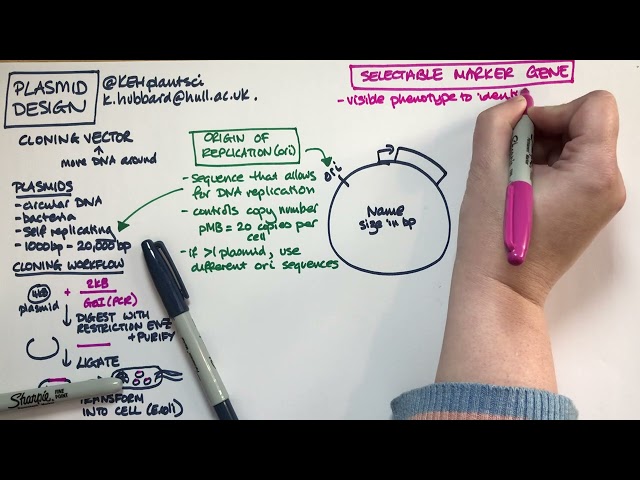 PLASMID
DESIGN
@KEHplantsci
k.hubbard@hull.ac.uk.
CLONING VECTOR
↑
move DNA around
PLASMIDS
- circular DNA
- bacteria
- self replicating
- 1000bp - 20,000bp
CLONING WORKFLOW
4kB
plasmid
+
2kB
GOI (PCR)
↓ DIGEST WITH
RESTRICTION ENZ
+ PURIFY
↓ LIGATE
TRANSFORM
INTO CELL (E.coli)
Sharpie
FINE POINT
ORIGIN OF
REPLICATION (ori)
- sequence that allows
for DNA replication
- controls copy number
pMB = 20 copies per
cell
- if >1 plasmid, use
different ori sequences
SELECTABLE MARKER GENE
- visible phenotype to identi
ori
Name
size in bp